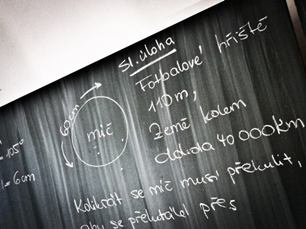 sl. úloha
Fotbalové hřiště
110 m,
Země kolem
dokola 40 000 km
60 cm
míč
= 105°
= 6 cm
Kolikrát se míč musí překulit,
aby se překutálel přes